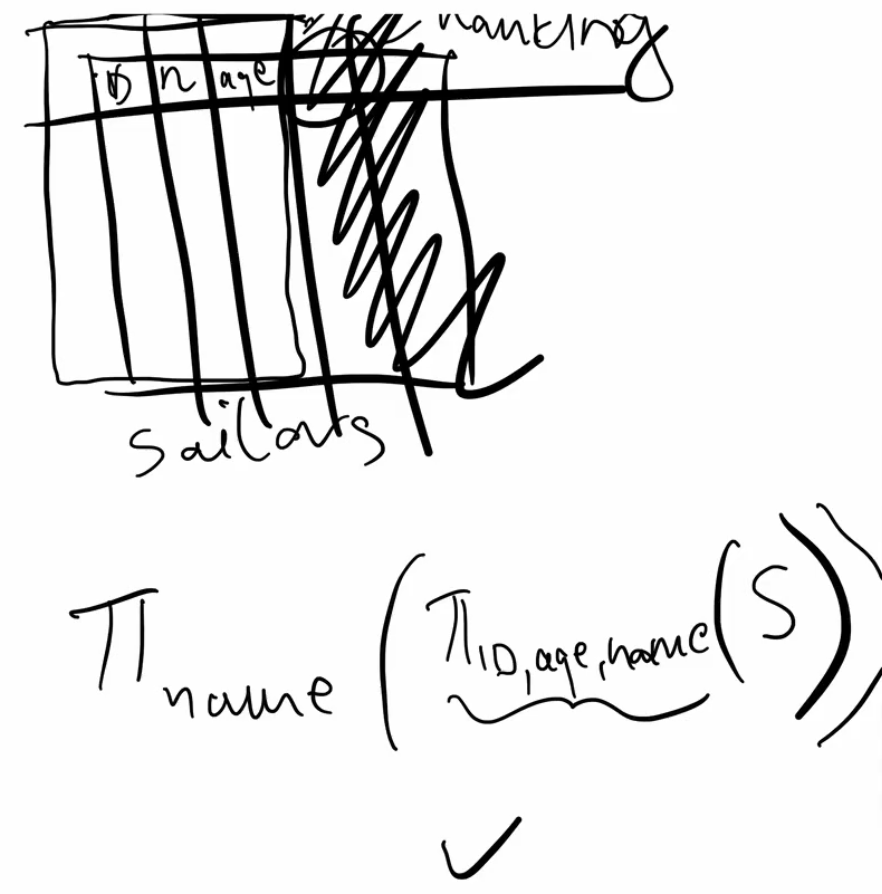 ranking
ID n age
Sailors
π name (π ID,age,name (S))